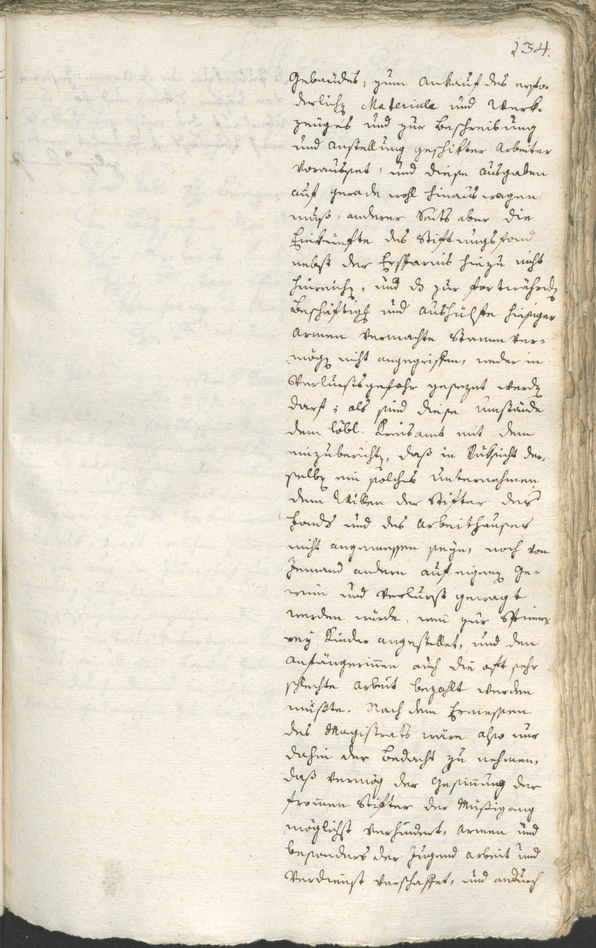 134.
Gebäudes, zum Ankauf des erfor-
derlichen Materials und Werk-
zeuges und zur Beschreibung
und Anstellung geschikter Arbeiter
voraussezt, und diese Ausgaben
auf gerade wohl hinaus wagen
muß, anderer Seits aber die
Einkünfte des Stiftungsfond
nebst der Ersparnis hiezu nicht
hinreichen, und das zur fortwährenden
Beschäftigung und Aushülfe hiesiger
Armen vermachte Stamm Ver-
mögen nicht angegriffen, weder in
Verlurstsgefahr gesezet werden
darf; als sind diese Umstände
dem löbl. Kreisamt mit dem
einzuberichten, daß in Rüksicht der-
selben ein solches Unternehmen
dem Willen der Stifter des
Fonds und des Arbeithauses
nicht angemessen seyn, noch von
Jemand andern auf eigenen Ge-
winn und Verlurst gewagt
werden würde, wenn zur Spinne-
rey Kinder angestellet, und den
Anfängerinnen auch die oft sehr
schlechte Arbeit bezahlt werden
müßte. Nach dem Ermessen
des Magistrats wäre also nur
dahin der Bedacht zu nehmen,
daß vermög der Gesinnung der
frommen Stifter der Müßigang
möglichst verhindert, Armen und
besonders der Jugend Arbeit und
Verdienst verschaffet, und andurch